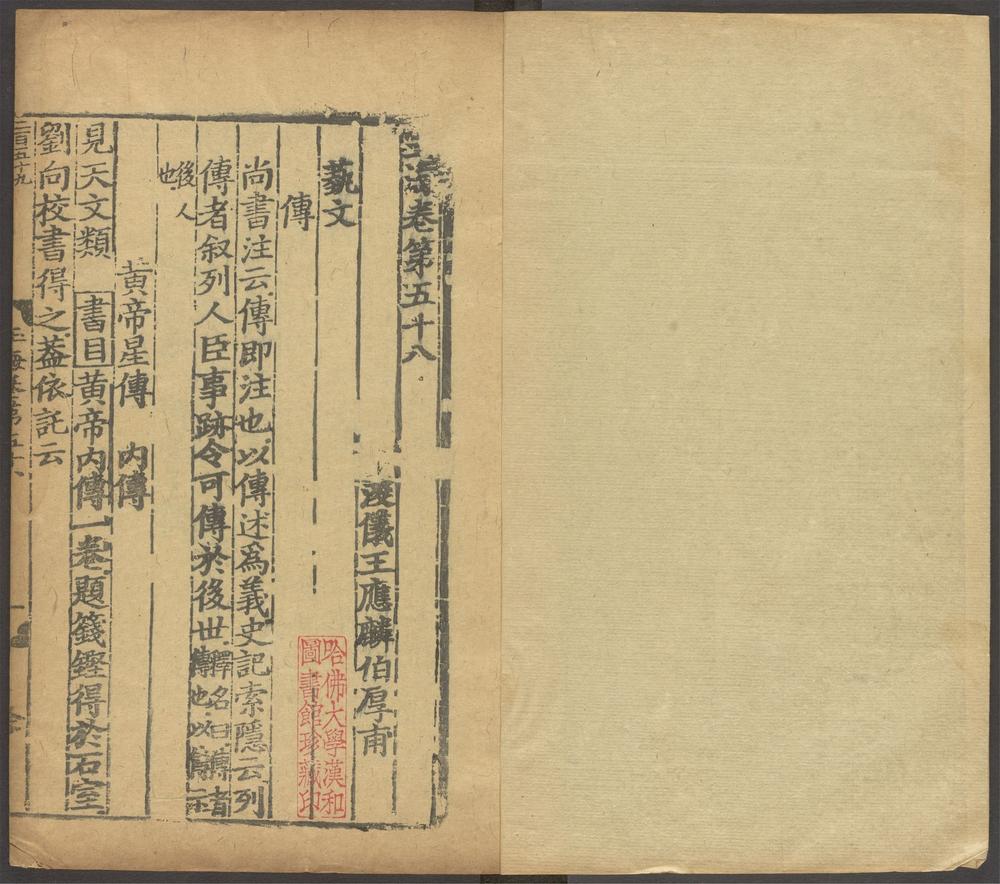 玉海卷第五十八
浚儀王應麟伯厚甫
藝文
傳
尚書注云傳即注也以傳述爲義史記索隱云列
傳者叙列人臣事跡令可傳於後世釋名曰傳者傳也以傳示
後人也
黃帝星傳 內傳
見天文類 書目黃帝內傳一卷題籛鏗得於石室
劉向校書得之葢依託云
二百五十九
玉海卷第五十八
一
哈佛大學漢和
圖書館珍藏印